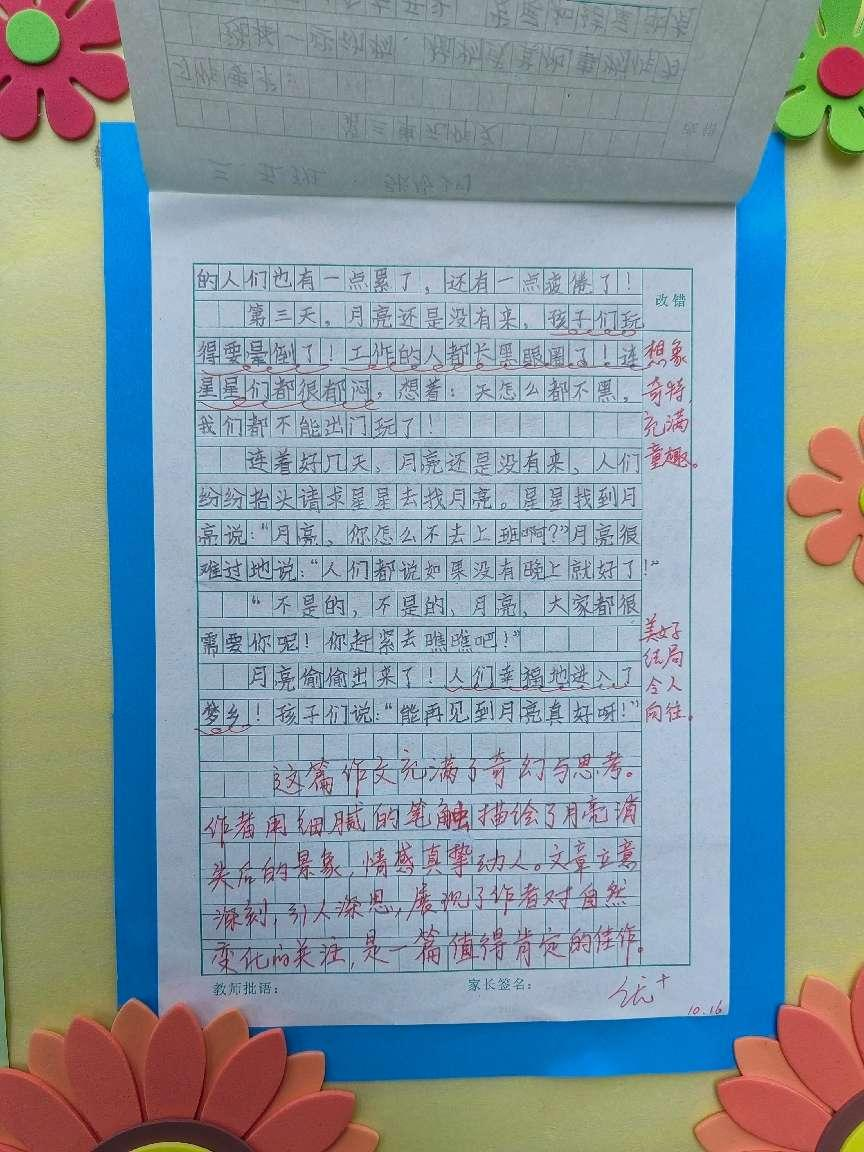 的人们也有一点累了，还有一点疲倦了！
改错
第三天，月亮还是没有来，孩子们玩
得要晕倒了！工作的人都长黑眼圈了！连
星星们都很郁闷，想着：天怎么都不黑，
我们都不能出门玩了！
想象
奇特，
充满
童趣。
连着好几天，月亮还是没有来，人们
纷纷抬头请求星星去找月亮。星星找到月
亮说：“月亮，你怎么不去上班啊？”月亮很
难过地说：“人们都说如果没有晚上就好了！”
“不是的，不是的，月亮，大家都很
需要你呢！你赶紧去瞧瞧吧！”
月亮偷偷出来了！人们幸福地进入了
梦乡！孩子们说：“能再见到月亮真好呀！”
美好
结局
令人
向往。
这篇作文充满了奇幻与思考。
作者用细腻的笔触描绘了月亮消
失后的景象，情感真挚动人。文章立意
深刻，引人深思，展现了作者对自然
变化的关注，是一篇值得肯定的佳作。
教师批语：
家长签名：
优+
10.16